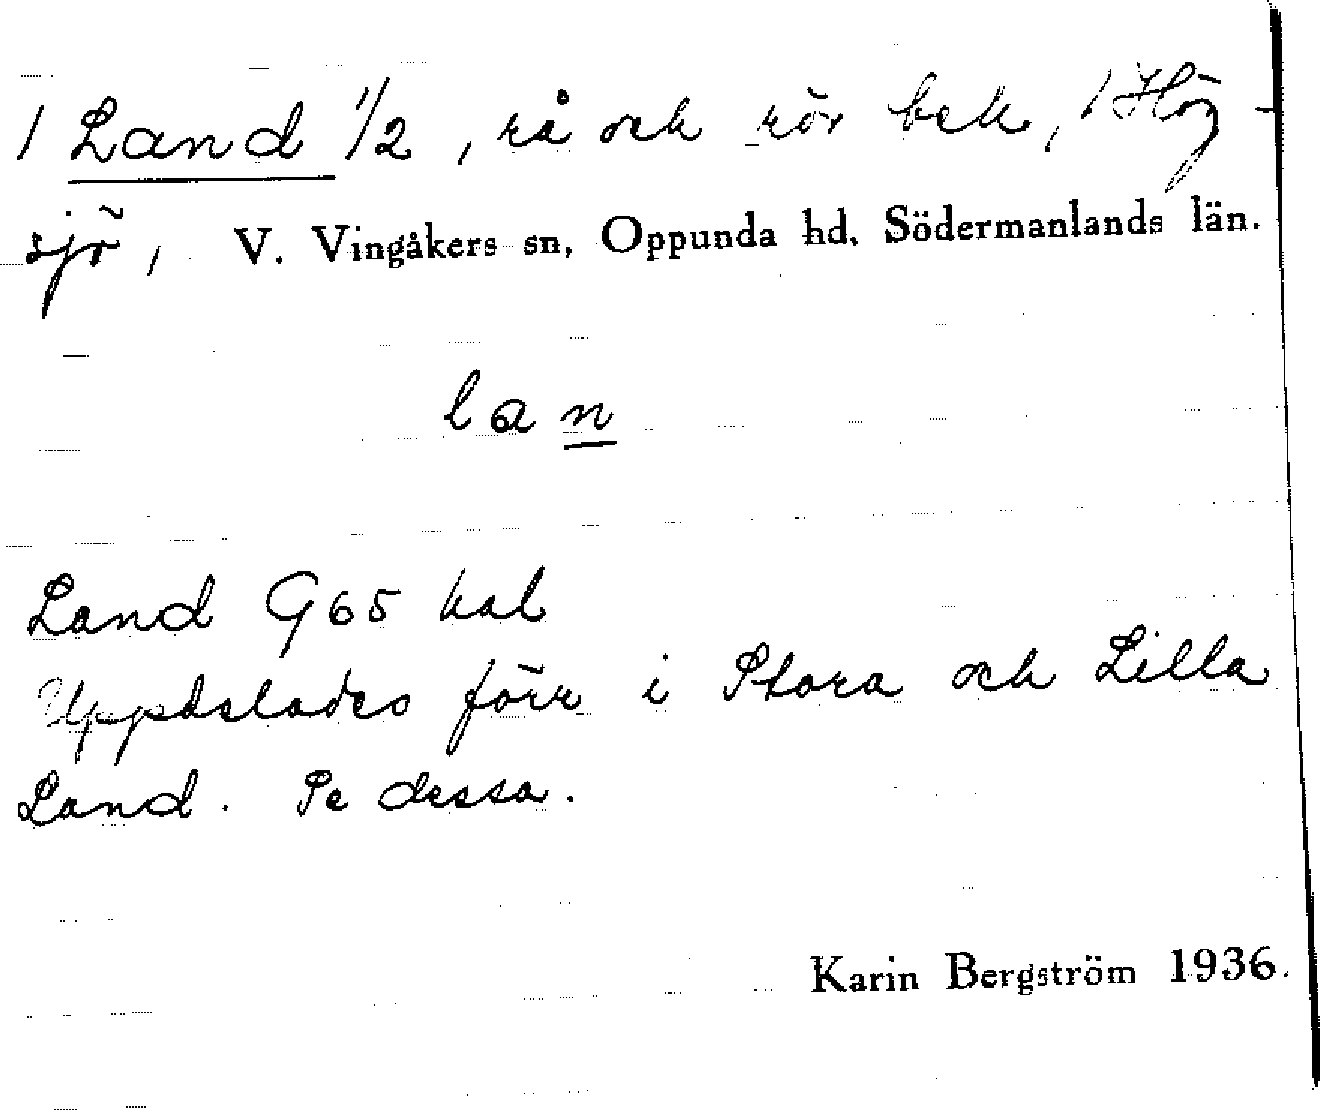 1 Land 1/2, rå och rör bek, 1 Hög-
sjö, V. Vingåkers sn, Oppunda hd. Södermanlands län.
lan
Land G65 kal
Uppdelades förr i Stora och Lilla
Land. Se dessa.
Karin Bergström 1936.